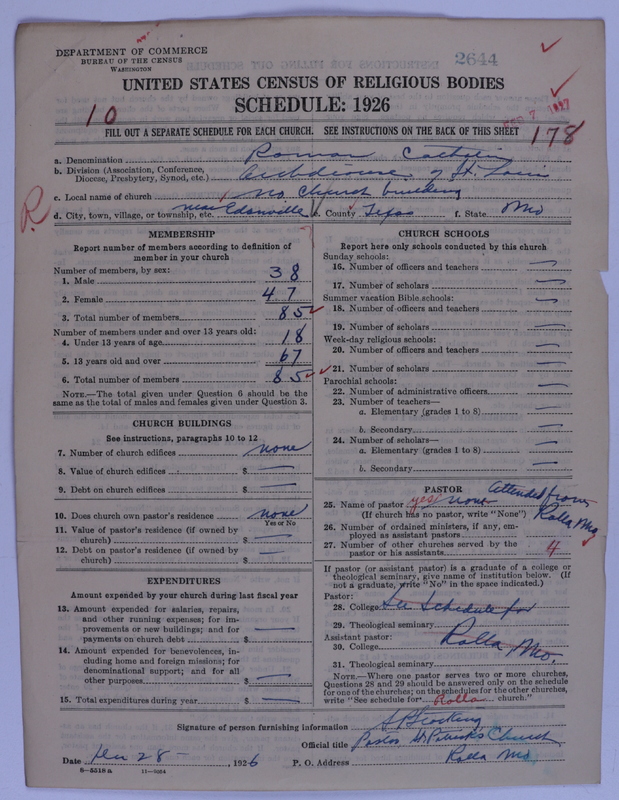 DEPARTMENT OF COMMERCE
BUREAU OF THE CENSUS
WASHINGTON
2644
UNITED STATES CENSUS OF RELIGIOUS BODIES
SCHEDULE: 1926
10
178
FILL OUT A SEPARATE SCHEDULE FOR EACH CHURCH. SEE INSTRUCTIONS ON THE BACK OF THIS SHEET
a. Denomination Roman Catholic
b. Division (Association, Conference,
Diocese, Presbytery, Synod, etc.) Archdiocese of St. Louis
c. Local name of church no church building
R
d. City, town, village, or township, etc. near Edanville e. County Texas f. State Mo
MEMBERSHIP
Report number of members according to definition of
member in your church
Number of members, by sex:
1. Male 38
2. Female 47
3. Total number of members 85
Number of members under and over 13 years old:
4. Under 13 years of age 18
5. 13 years old and over 67
6. Total number of members 85
NOTE.—The total given under Question 6 should be
same as the total of males and females given under Question 3.
CHURCH BUILDINGS
See instructions, paragraphs 10 to 12
7. Number of church edifices none
8. Value of church edifices $ —
9. Debt on church edifices $ —
10. Does church own pastor's residence none
Yes or No
11. Value of pastor's residence (if owned by
church) $ —
12. Debt on pastor's residence (if owned by
church) $ —
EXPENDITURES
Amount expended by your church during last fiscal year
13. Amount expended for salaries, repairs,
and other running expenses; for im-
provements or new buildings; and for
payments on church debt $ —
14. Amount expended for benevolences, in-
cluding home and foreign missions; for
denominational support; and for all
other purposes $ —
15. Total expenditures during year $ —
CHURCH SCHOOLS
Report here only schools conducted by this church
Sunday schools:
16. Number of officers and teachers —
17. Number of scholars —
Summer vacation Bible schools:
18. Number of officers and teachers —
19. Number of scholars —
Week-day religious schools:
20. Number of officers and teachers —
21. Number of scholars —
Parochial schools:
22. Number of administrative officers —
23. Number of teachers—
a. Elementary (grades 1 to 8) —
b. Secondary —
24. Number of scholars—
a. Elementary (grades 1 to 8) —
b. Secondary —
PASTOR
25. Name of pastor yes none Attended from
(If church has no pastor, write "None") Rolla Mo
26. Number of ordained ministers, if any, em-
ployed as assistant pastors
27. Number of other churches served by the
pastor or his assistants 4
If pastor (or assistant pastor) is a graduate of a college or
theological seminary, give name of institution below. (If
not a graduate, write "No" in the space indicated.)
Pastor:
28. College See Schedule for
29. Theological seminary
Assistant pastor: Rolla Mo.
30. College
31. Theological seminary
NOTE.—Where one pastor serves two or more churches,
Questions 28 and 29 should be answered only on the schedule
for one of the churches; on the schedules for the other churches,
write "See schedule for Rolla church."
Signature of person furnishing information
Official title Pastor St Patricks Church
Date 28 - , 1926 P. O. Address Rolla Mo.
8—5518 a 11—9554